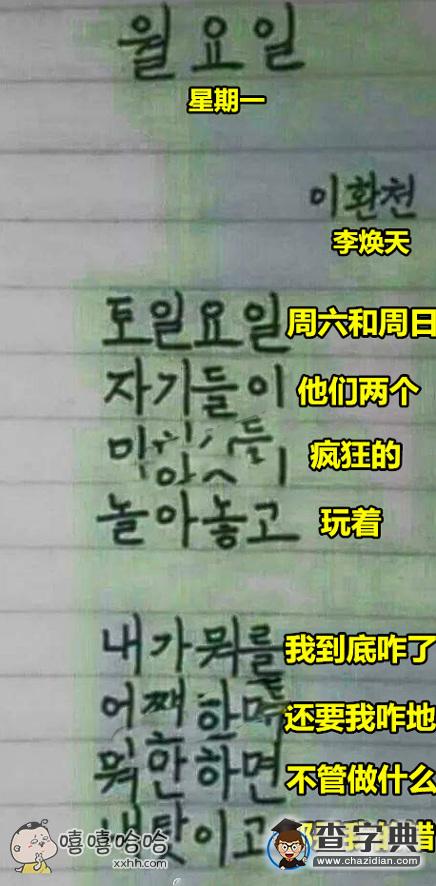 월요일
星期一
이환천
李焕天
토일요일 周六和周日
자기들이 他们两个
疯狂的
놀아놓고 玩着
내가뭐를 我到底咋了
还要我咋地
뭐만하면 不管做什么
내탓이고
嘻嘻哈哈
xxhh.com
查字典
www.chazidian.com